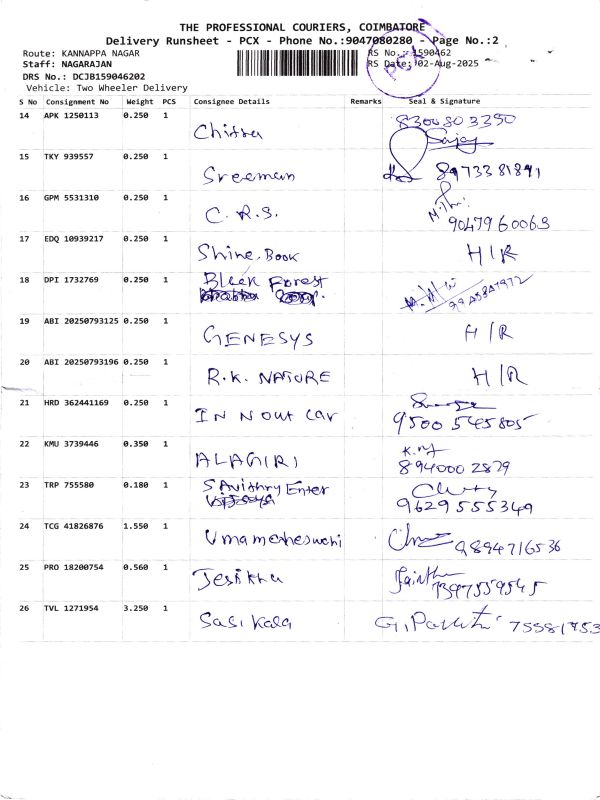 THE PROFESSIONAL COURIERS, COIMBATORE
Delivery Runsheet - PCX - Phone No.:9047080280 - Page No.:2
Route: KANNAPPA NAGAR
RS No.: 1590462
Staff: NAGARAJAN
RS Date: 02-Aug-2025
DRS No.: DCJB159046202
Vehicle: Two Wheeler Delivery
PCX
S No Consignment No Weight PCS Consignee Details Remarks Seal & Signature
14 APK 1250113 0.250 1 Chitra 8300803350
15 TKY 939557 0.250 1 Sreeman 8973381891
16 GPM 5531310 0.250 1 C.R.S. 9047960063
17 EDQ 10939217 0.250 1 Shine. Book H/R
18 DPI 1732769 0.250 1 Bleek Forest
19 ABI 20250793125 0.250 1 GENESYS H/R
20 ABI 20250793196 0.250 1 R.K. NATURE H/R
21 HRD 362441169 0.250 1 IN N OUT Car 9500545805
22 KMU 3739446 0.350 1 ALAGIRI 8940002879
23 TRP 755580 0.180 1 SAvithry Enter 9629555349
24 TCG 41826876 1.550 1 Umamaheswari 9894716536
25 PRO 18200754 0.560 1 Jesikha 7397559545
26 TVL 1271954 3.250 1 Sasikala G. 75581753